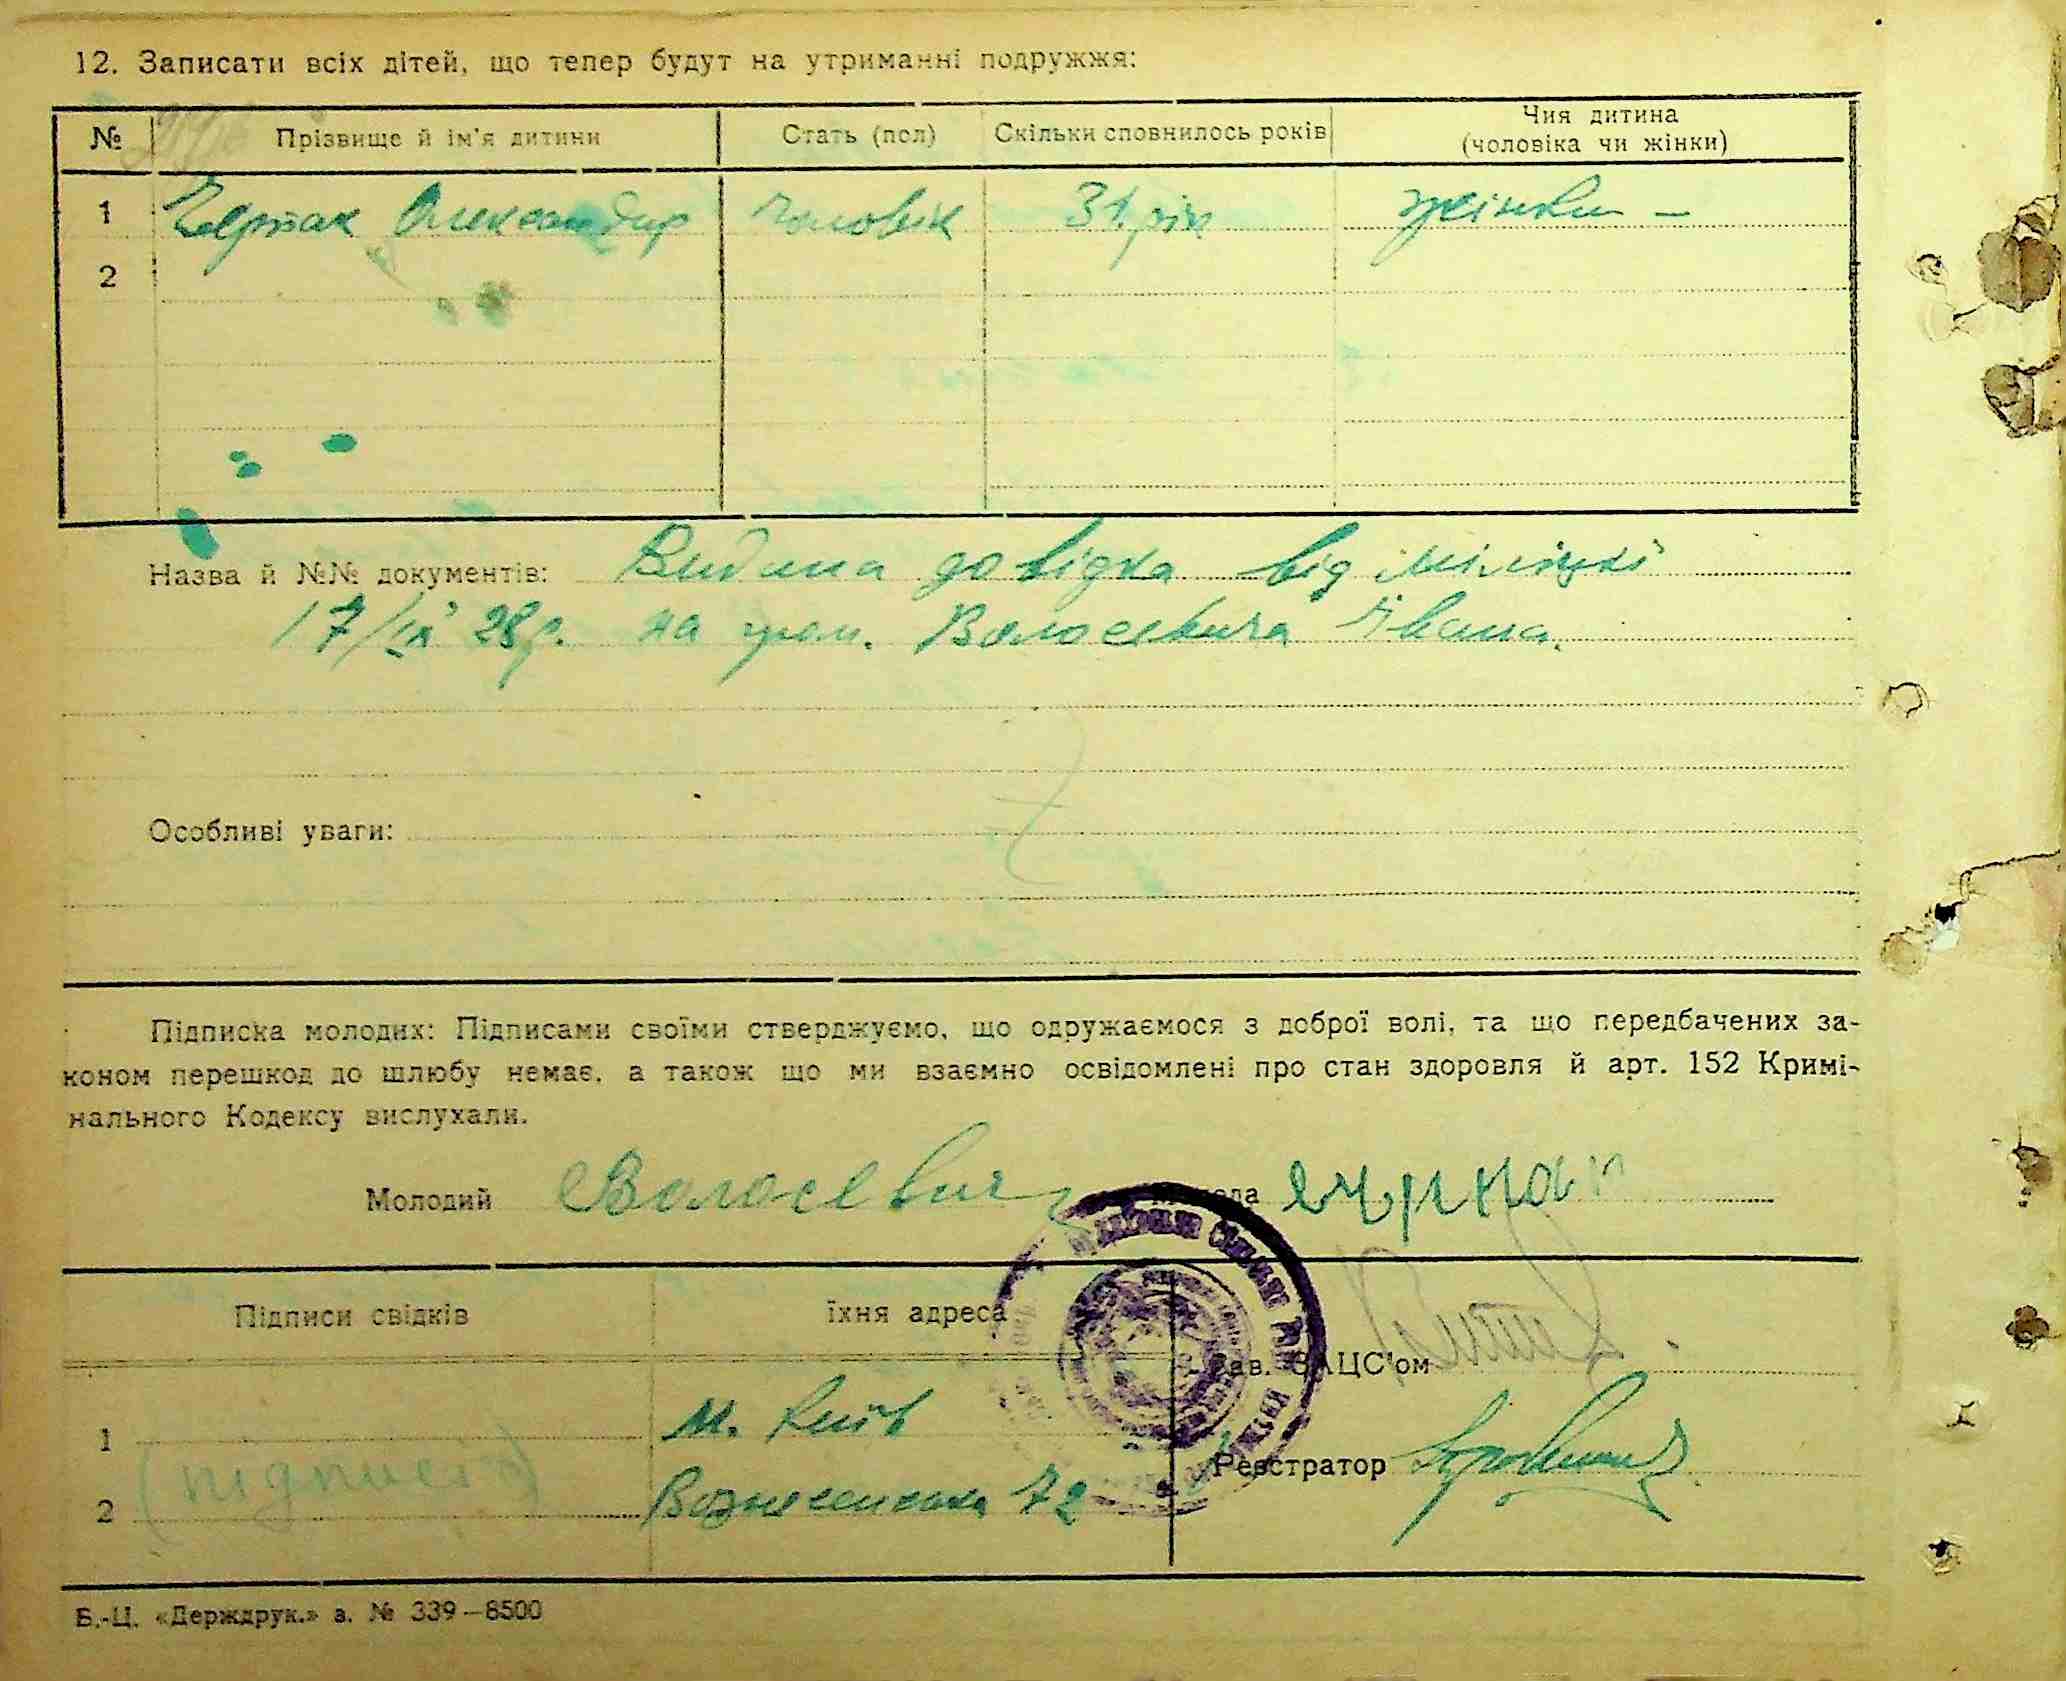 12. Записати всіх дітей, що тепер будут на утриманні подружжя:
№ Прізвище й ім'я дитини Стать (пол) Скільки сповнилось років Чия дитина
(чоловіка чи жінки)
1 Олександир Чоловік 31 рік жінки –
2
Назва й №№ документів: Видана довідка від міліції
17/IX 28р. на гром. Волосевича Івана.
Особливі уваги:
Підписка молодих: Підписами своїми стверджуємо, що одружаємося з доброї волі, та що передбачених за-
коном перешкод до шлюбу немає, а також що ми взаємно освідомлені про стан здоровля й арт. 152 Кримі-
нального Кодексу вислухали.
Молодий Волосевич Молода
Підписи свідків їхня адреса
Зав. ЗАЦС'ом
1 М. Київ
(підписі) Реєстратор
2 Вознесенська 72
Б.-Ц. «Держдрук.» з. № 339—8500